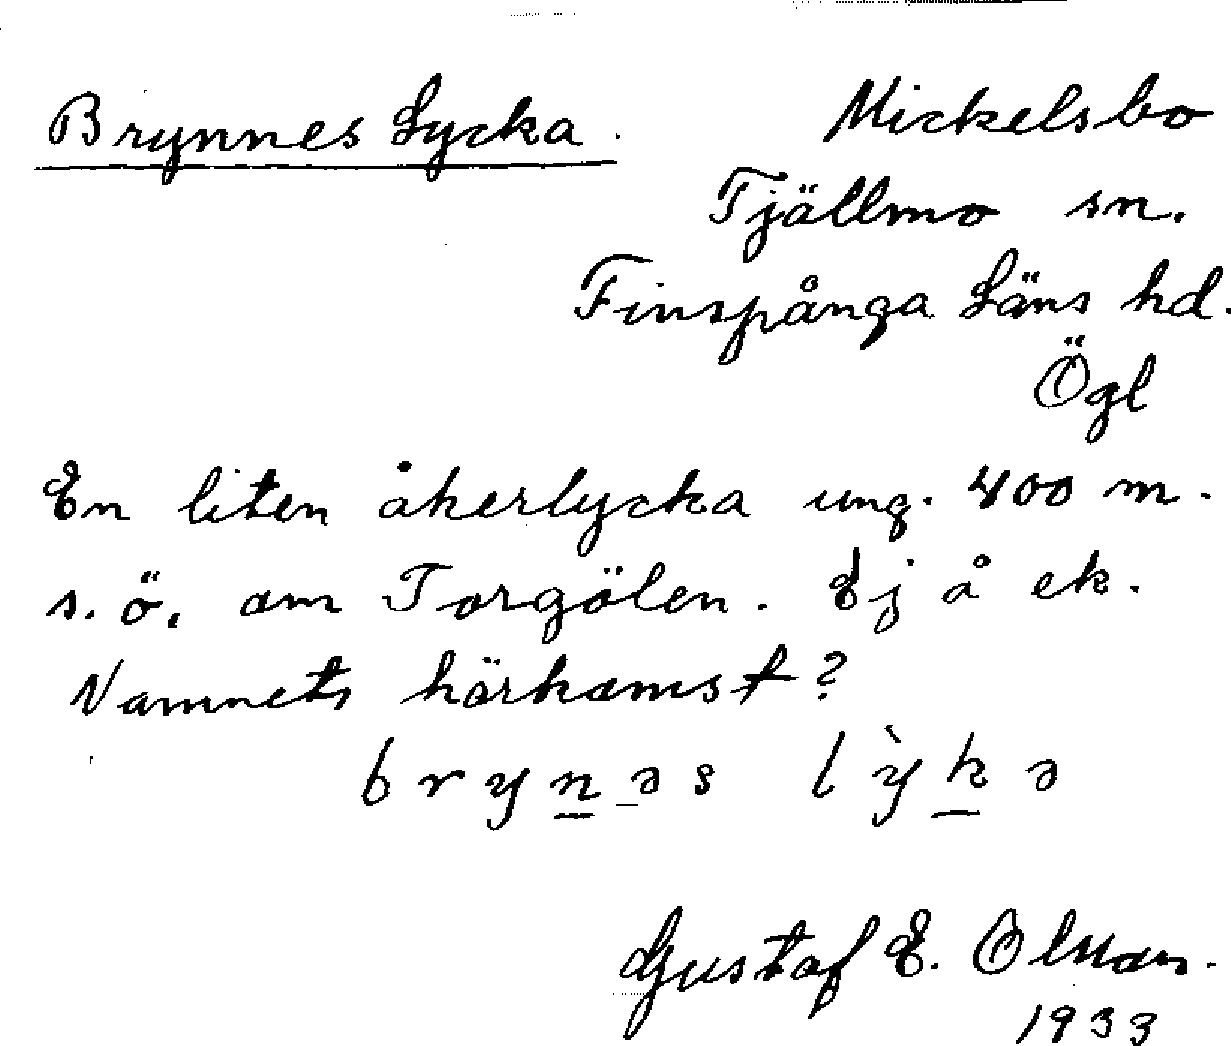 Brynnes Lycka.
Mickelsbo
Tjällmo sn.
Finspånga Läns hd.
Ögl
En liten åkerlycka ung. 400 m.
s.ö. om Torgölen. Ej å ek.
Namnets härkomst?
brynəs lỳkə
Gustaf E. Olsson.
1933